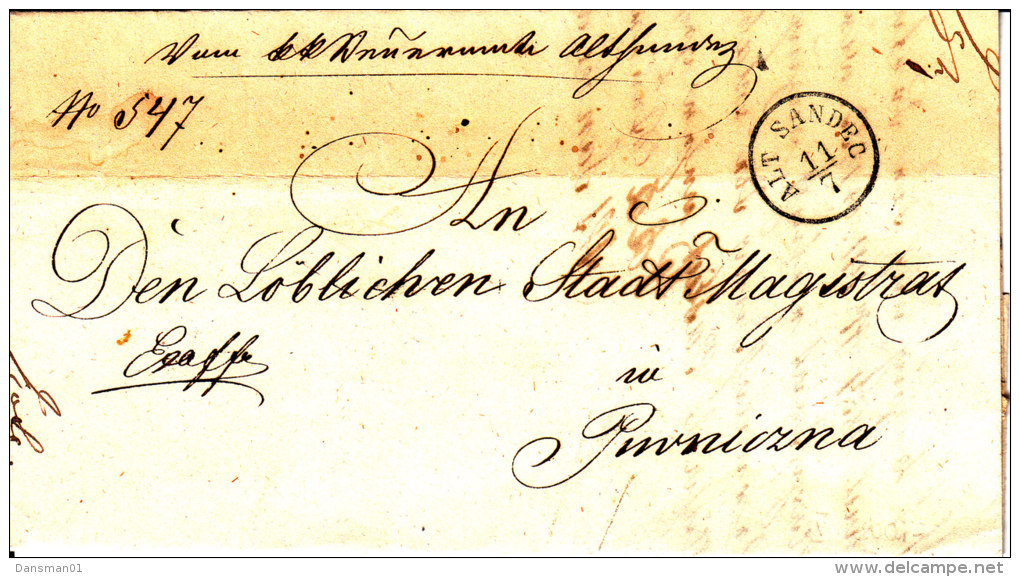 Vom kk Steueramte Altsandez
No 547
ALT SANDEC
11/7
An
Den Löblichen Stadt Magistrat
Exoffo
in
Piwniczna
Dansman01
www.delcampe.net